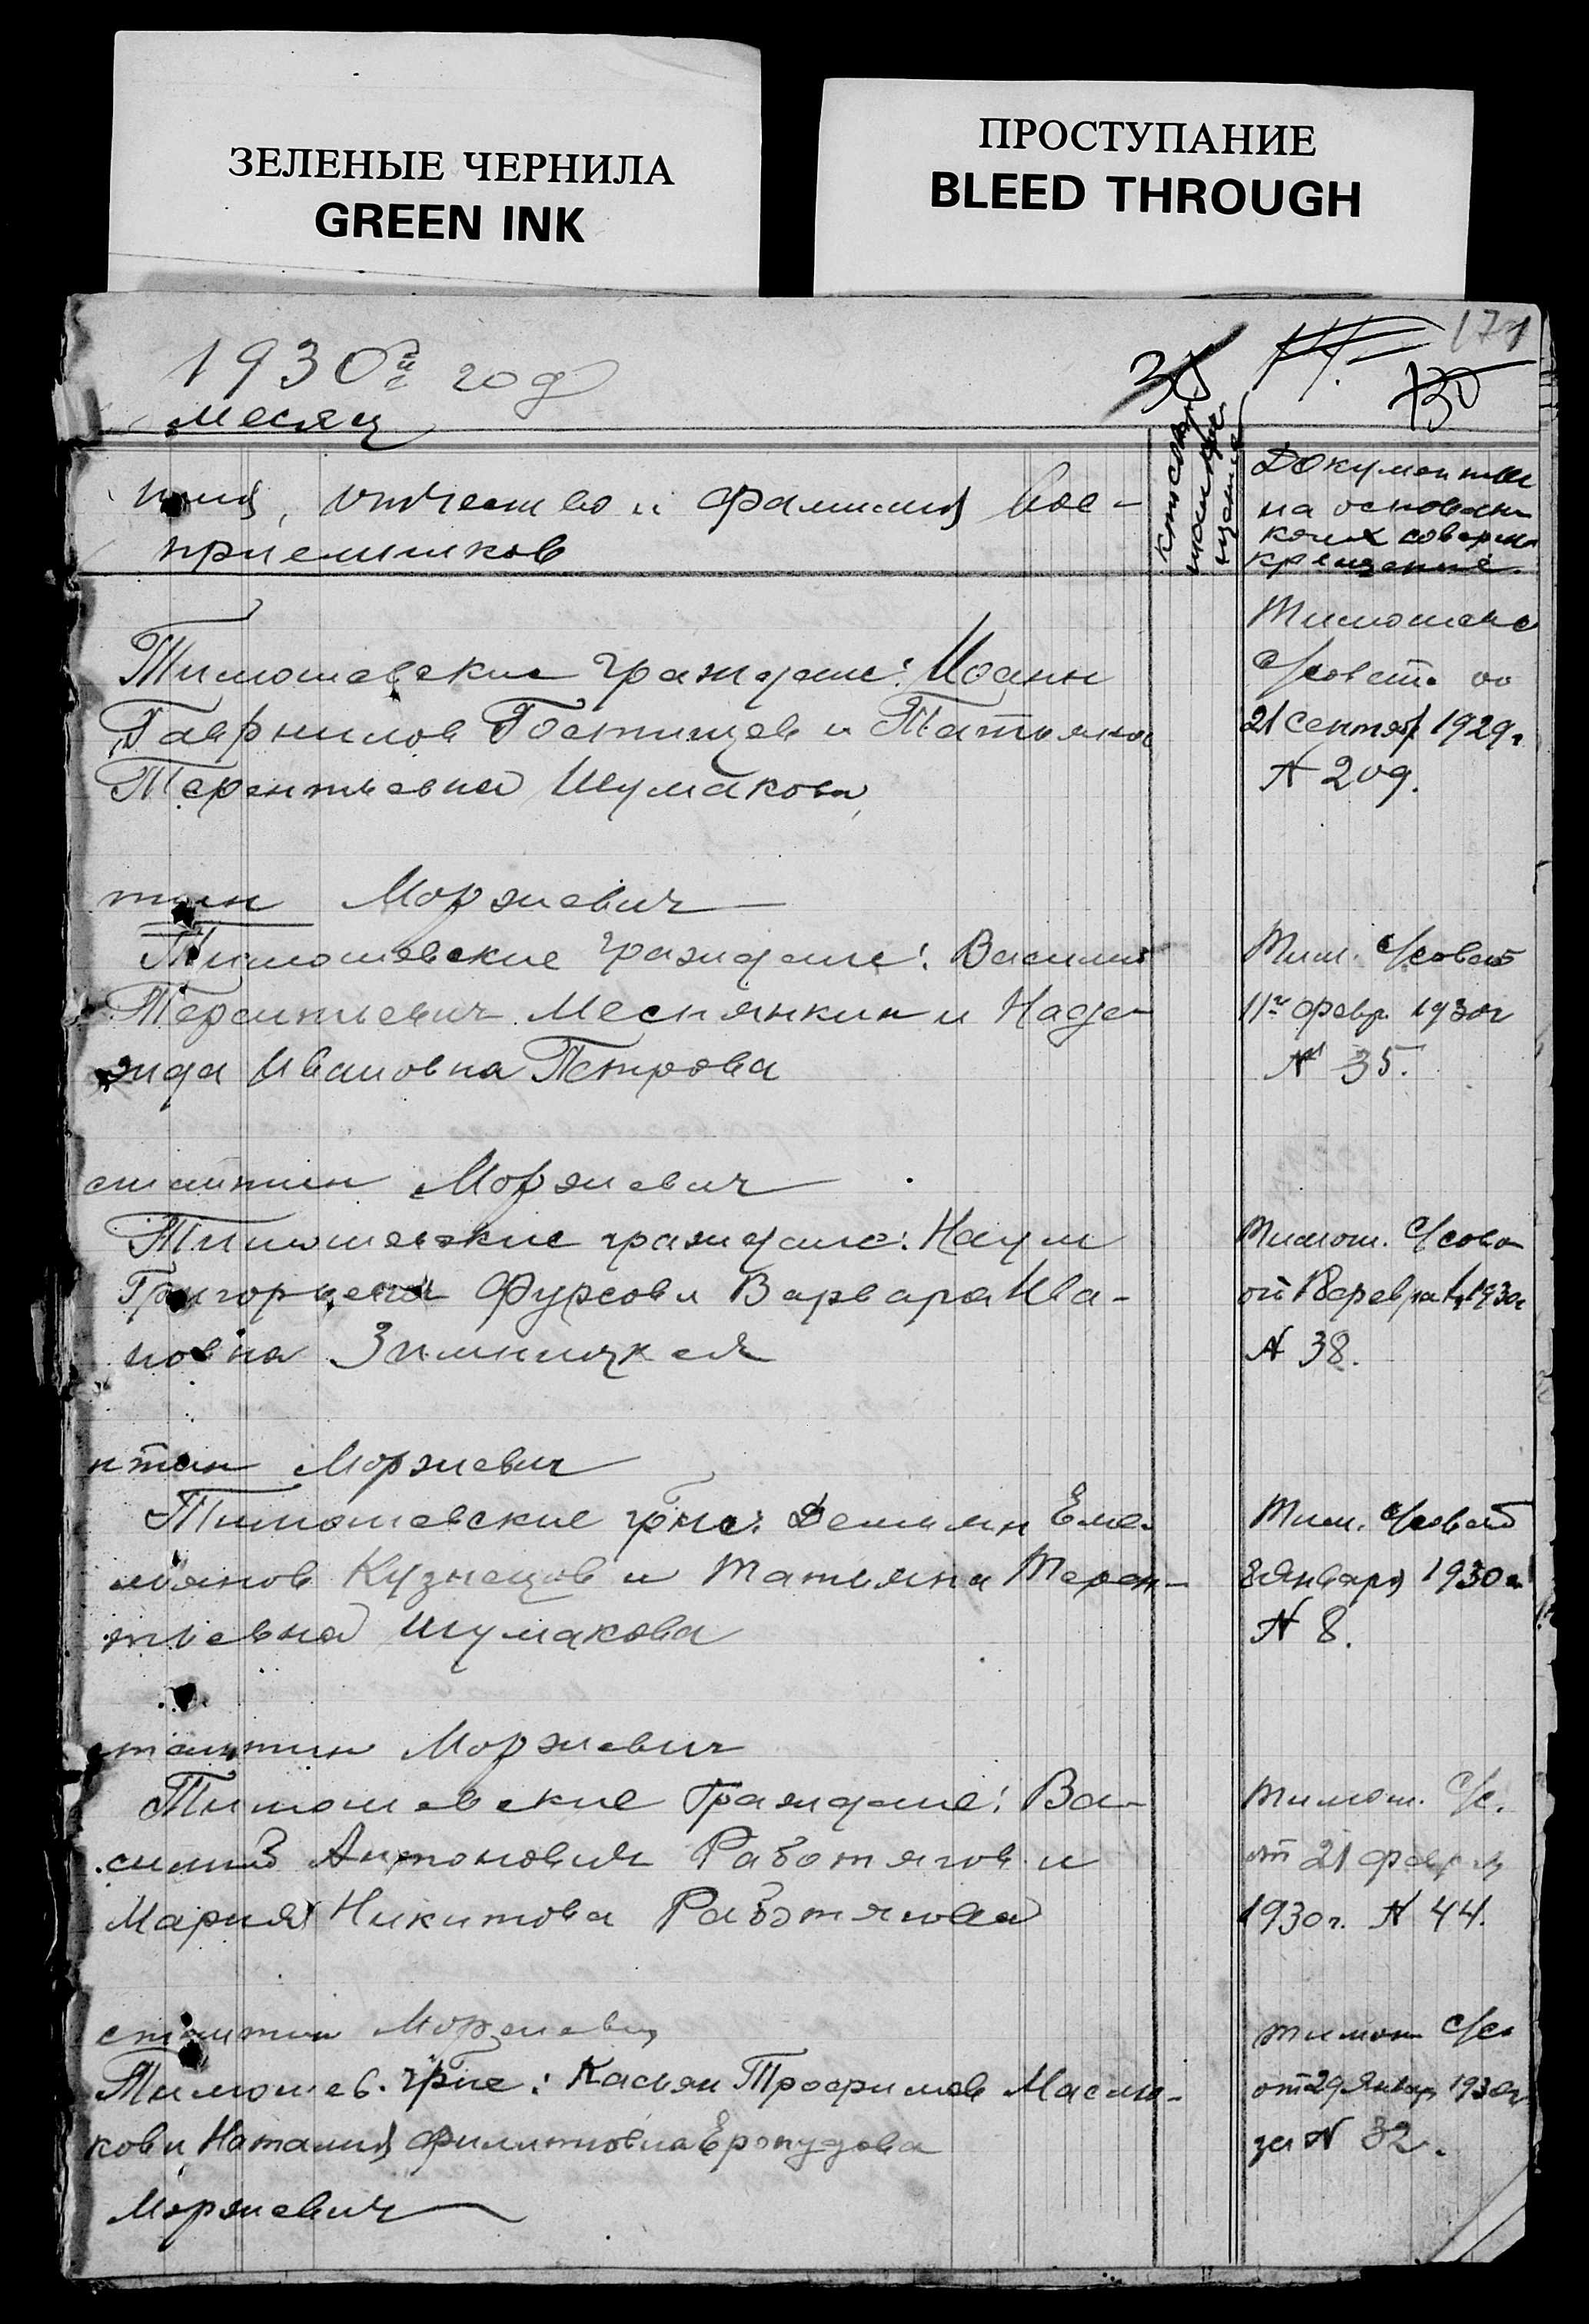 ЗЕЛЕНЫЕ ЧЕРНИЛА
GREEN INK
ПРОСТУПАНИЕ
BLEED THROUGH
171
35
130
1930й год
месяц
имя, отчество и фамилия вос-
приемников
Документы
на основан
коих соверше
крещение.
Тимошевские граждане: Иоанн
Гаврилов Гостищев и Татьяна
Терентьевна Шумакова
Тимошевс
с/совета от
21 сентяб 1929г
№ 209.
тин Моржевич
Тимошевские граждане: Василий
Терентьевич Меснянкин и Наде-
жда Ивановна Петрова
Тим. с/совет
11го февр. 1930г
№ 35.
стантин Моржевич
Тимошевские граждане: Наум
Григорьевич Фурсов и Варвара Ива-
новна Зимницкая
Тимош. с/сове
от 18 февраля 1930г
№ 38.
нтин Моржевич
Тимошевские гр-не: Демьян Еме-
льянов Кузнецов и Татьяна Терен-
тьевна Шумакова
Тим. с/совет
8 января 1930г
№ 8.
стантин Моржевич
Тимошевские граждане: Ва-
силий Антонович Работягов и
Мария Никитова Работягова
Тимош. с/с.
от 21 февр
1930г. № 44.
стантин Моржевич
Тимошев. гр-не: Касьян Трофимов Маслю-
ков и Наталия Филиповна
Моржевич
Тимош с/с
от 29 январ 1930г
за № 32.